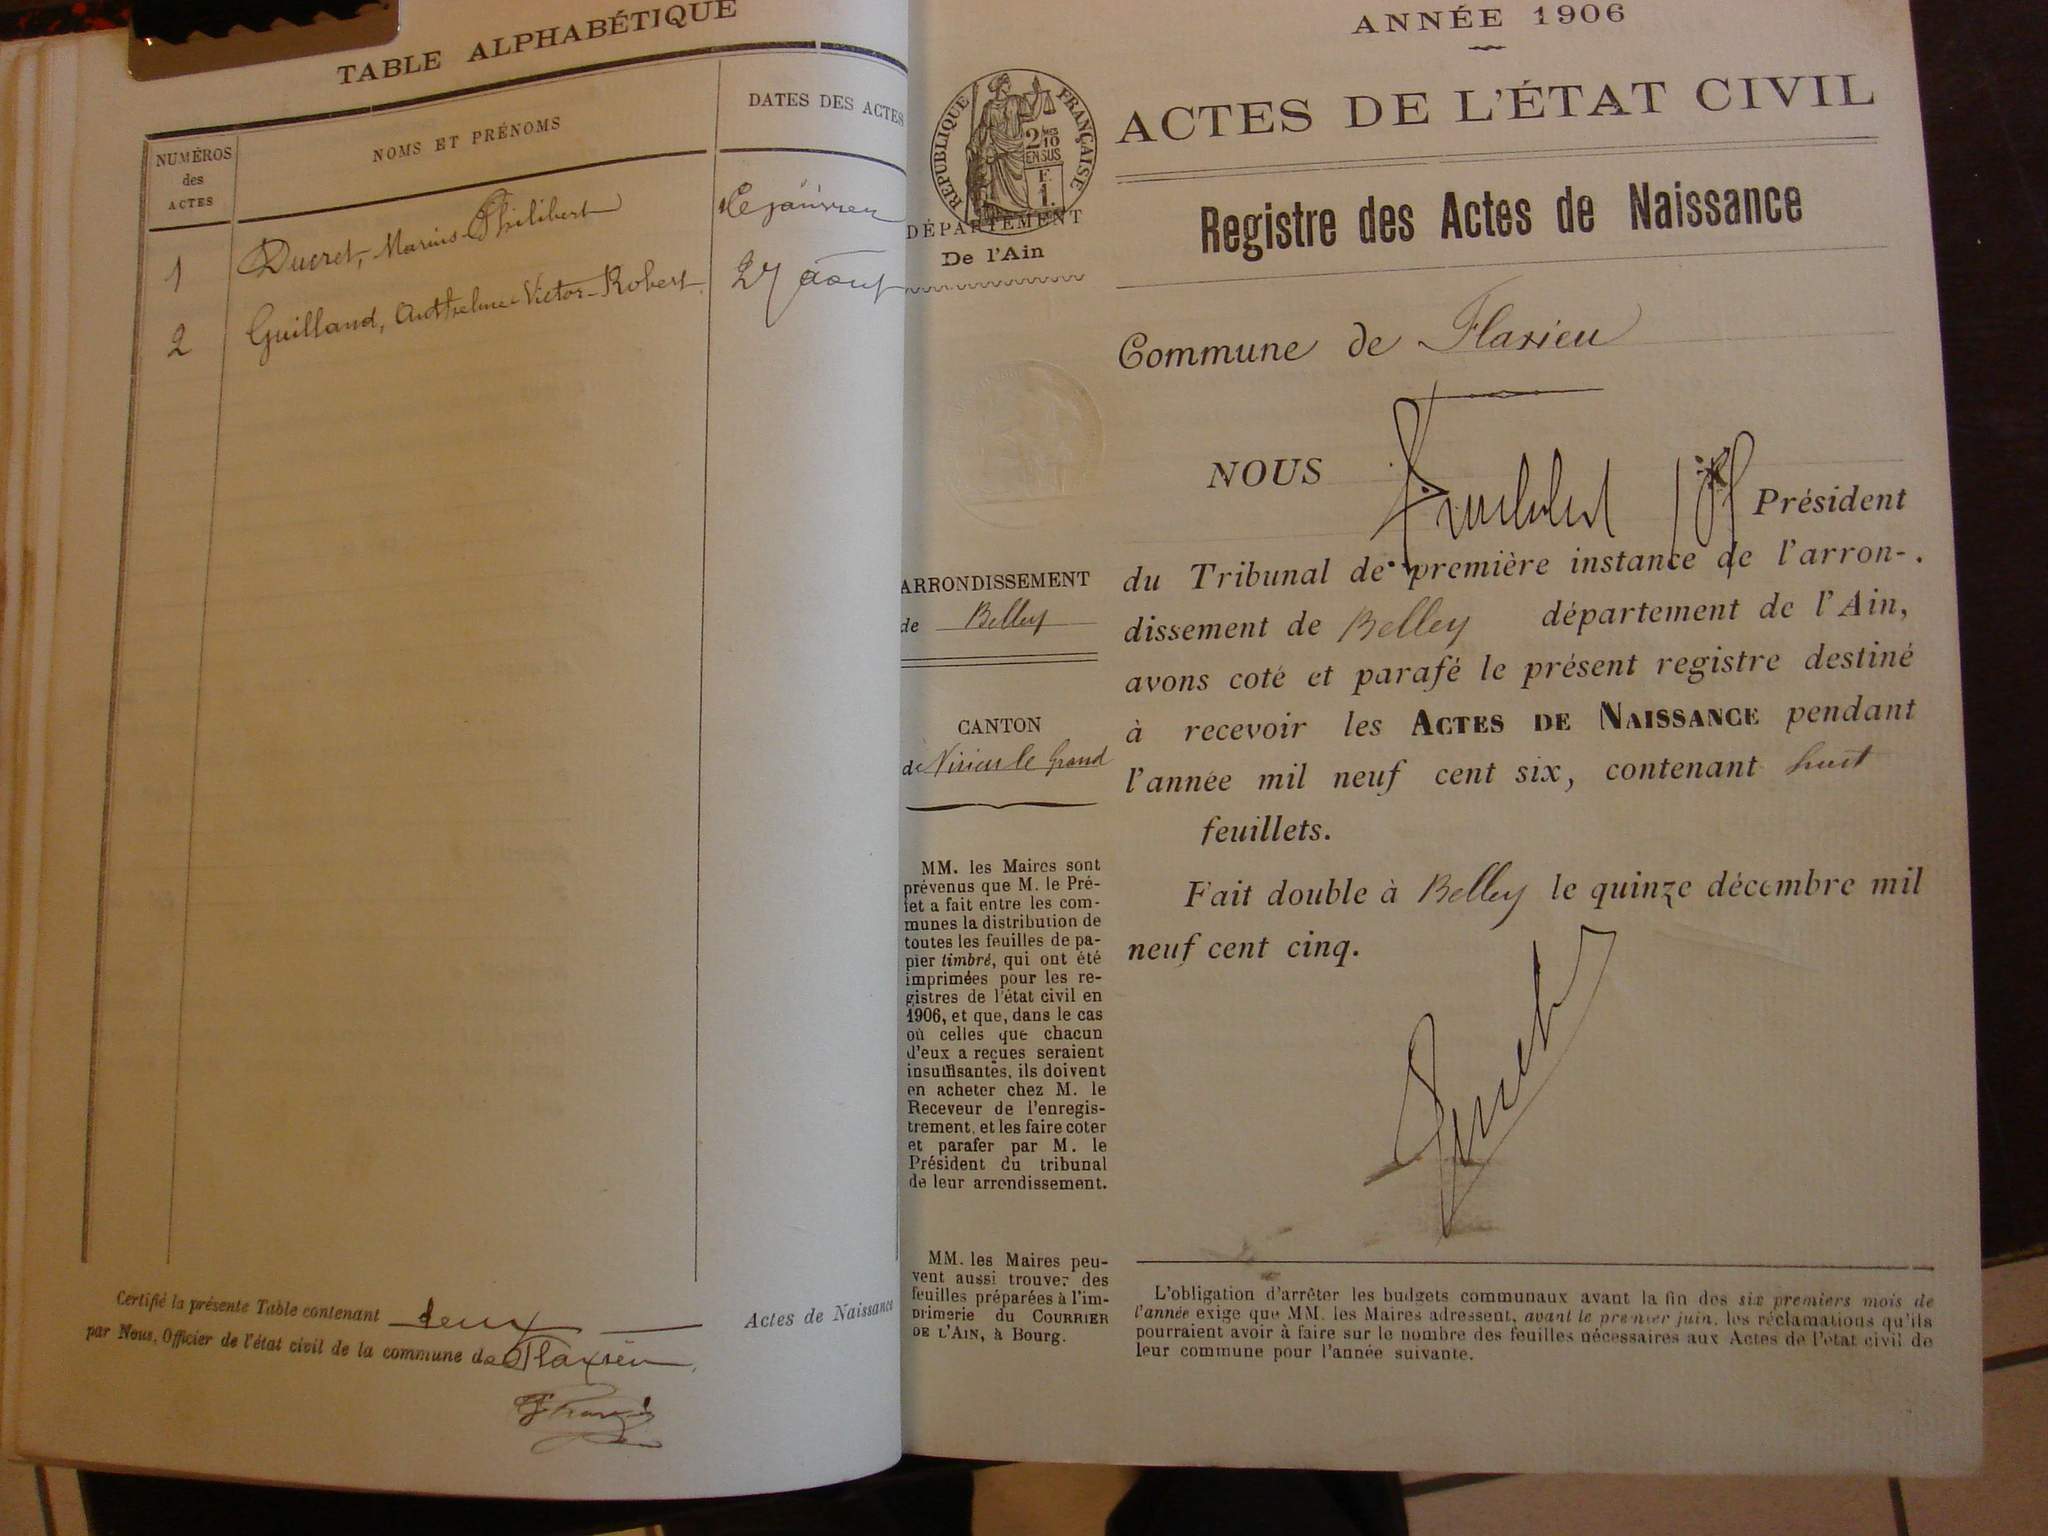 TABLE ALPHABÉTIQUE
NUMÉROS
des
ACTES
NOMS ET PRÉNOMS
DATES DES ACTES
1
Ducret, Marius-Philibert
janvier
2
Guilland, Anthelme-Victor-Robert
27 août
Certifié la présente Table contenant deux Actes de Naissance
par Nous, Officier de l'état civil de la commune de Flaxieu
ANNÉE 1906
ACTES DE L'ÉTAT CIVIL
RÉPUBLIQUE FRANÇAISE
2/10
EN SUS
F.
1.
DÉPARTEMENT
De l'Ain
Registre des Actes de Naissance
Commune de Flaxieu
NOUS
Président
du Tribunal de première instance de l'arron-
dissement de Belley département de l'Ain,
avons coté et parafé le présent registre destiné
à recevoir les ACTES DE NAISSANCE pendant
l'année mil neuf cent six, contenant huit
feuillets.
Fait double à Belley le quinze décembre mil
neuf cent cinq.
ARRONDISSEMENT
de Belley
CANTON
de Virieu le Grand
MM. les Maires sont
prévenus que M. le Pré-
fet a fait entre les com-
munes la distribution de
toutes les feuilles de pa-
pier timbré, qui ont été
imprimées pour les re-
gistres de l'état civil en
1906, et que, dans le cas
où celles que chacun
d'eux a reçues seraient
insuffisantes, ils doivent
en acheter chez M. le
Receveur de l'enregis-
trement, et les faire coter
et parafer par M. le
Président du tribunal
de leur arrondissement.
MM. les Maires peu-
vent aussi trouver des
feuilles préparées à l'im-
primerie du COURRIER
DE L'AIN, à Bourg.
L'obligation d'arrêter les budgets communaux avant la fin des six premiers mois de
l'année exige que MM. les Maires adressent, avant le premier juin, les réclamations qu'ils
pourraient avoir à faire sur le nombre des feuilles nécessaires aux Actes de l'état civil de
leur commune pour l'année suivante.